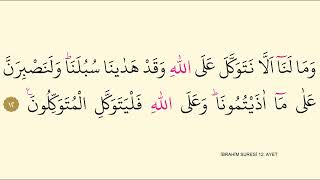 وَمَا لَنَٓا اَلَّا نَتَوَكَّلَ عَلَى اللّٰهِ وَقَدْ هَدٰينَا سُبُلَنَاۜ وَلَنَصْبِرَنَّ
عَلٰى مَٓا اٰذَيْتُمُونَاۜ وَعَلَى اللّٰهِ فَلْيَتَوَكَّلِ الْمُتَوَكِّلُونَ۟ ﴿١٢﴾
İBRAHİM SURESİ 12. AYET